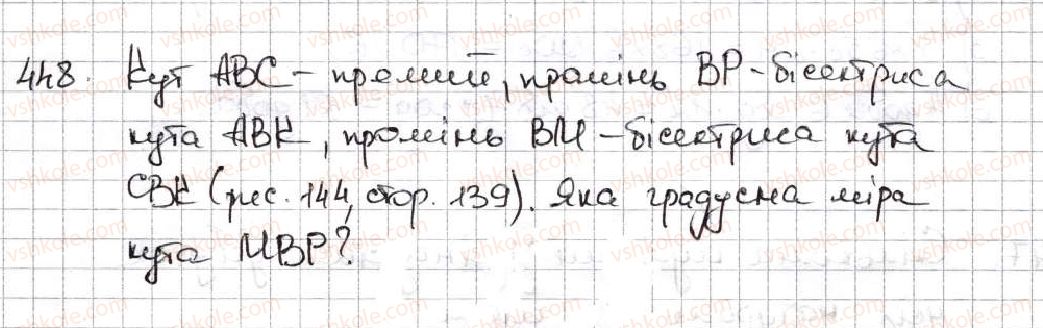 448. Кут ABC – прямий, промінь BP – бісектриса
кута ABK, промінь BM – бісектриса кута
CBK (рис. 144, стор. 139). Яка градусна міра
кута MBP?